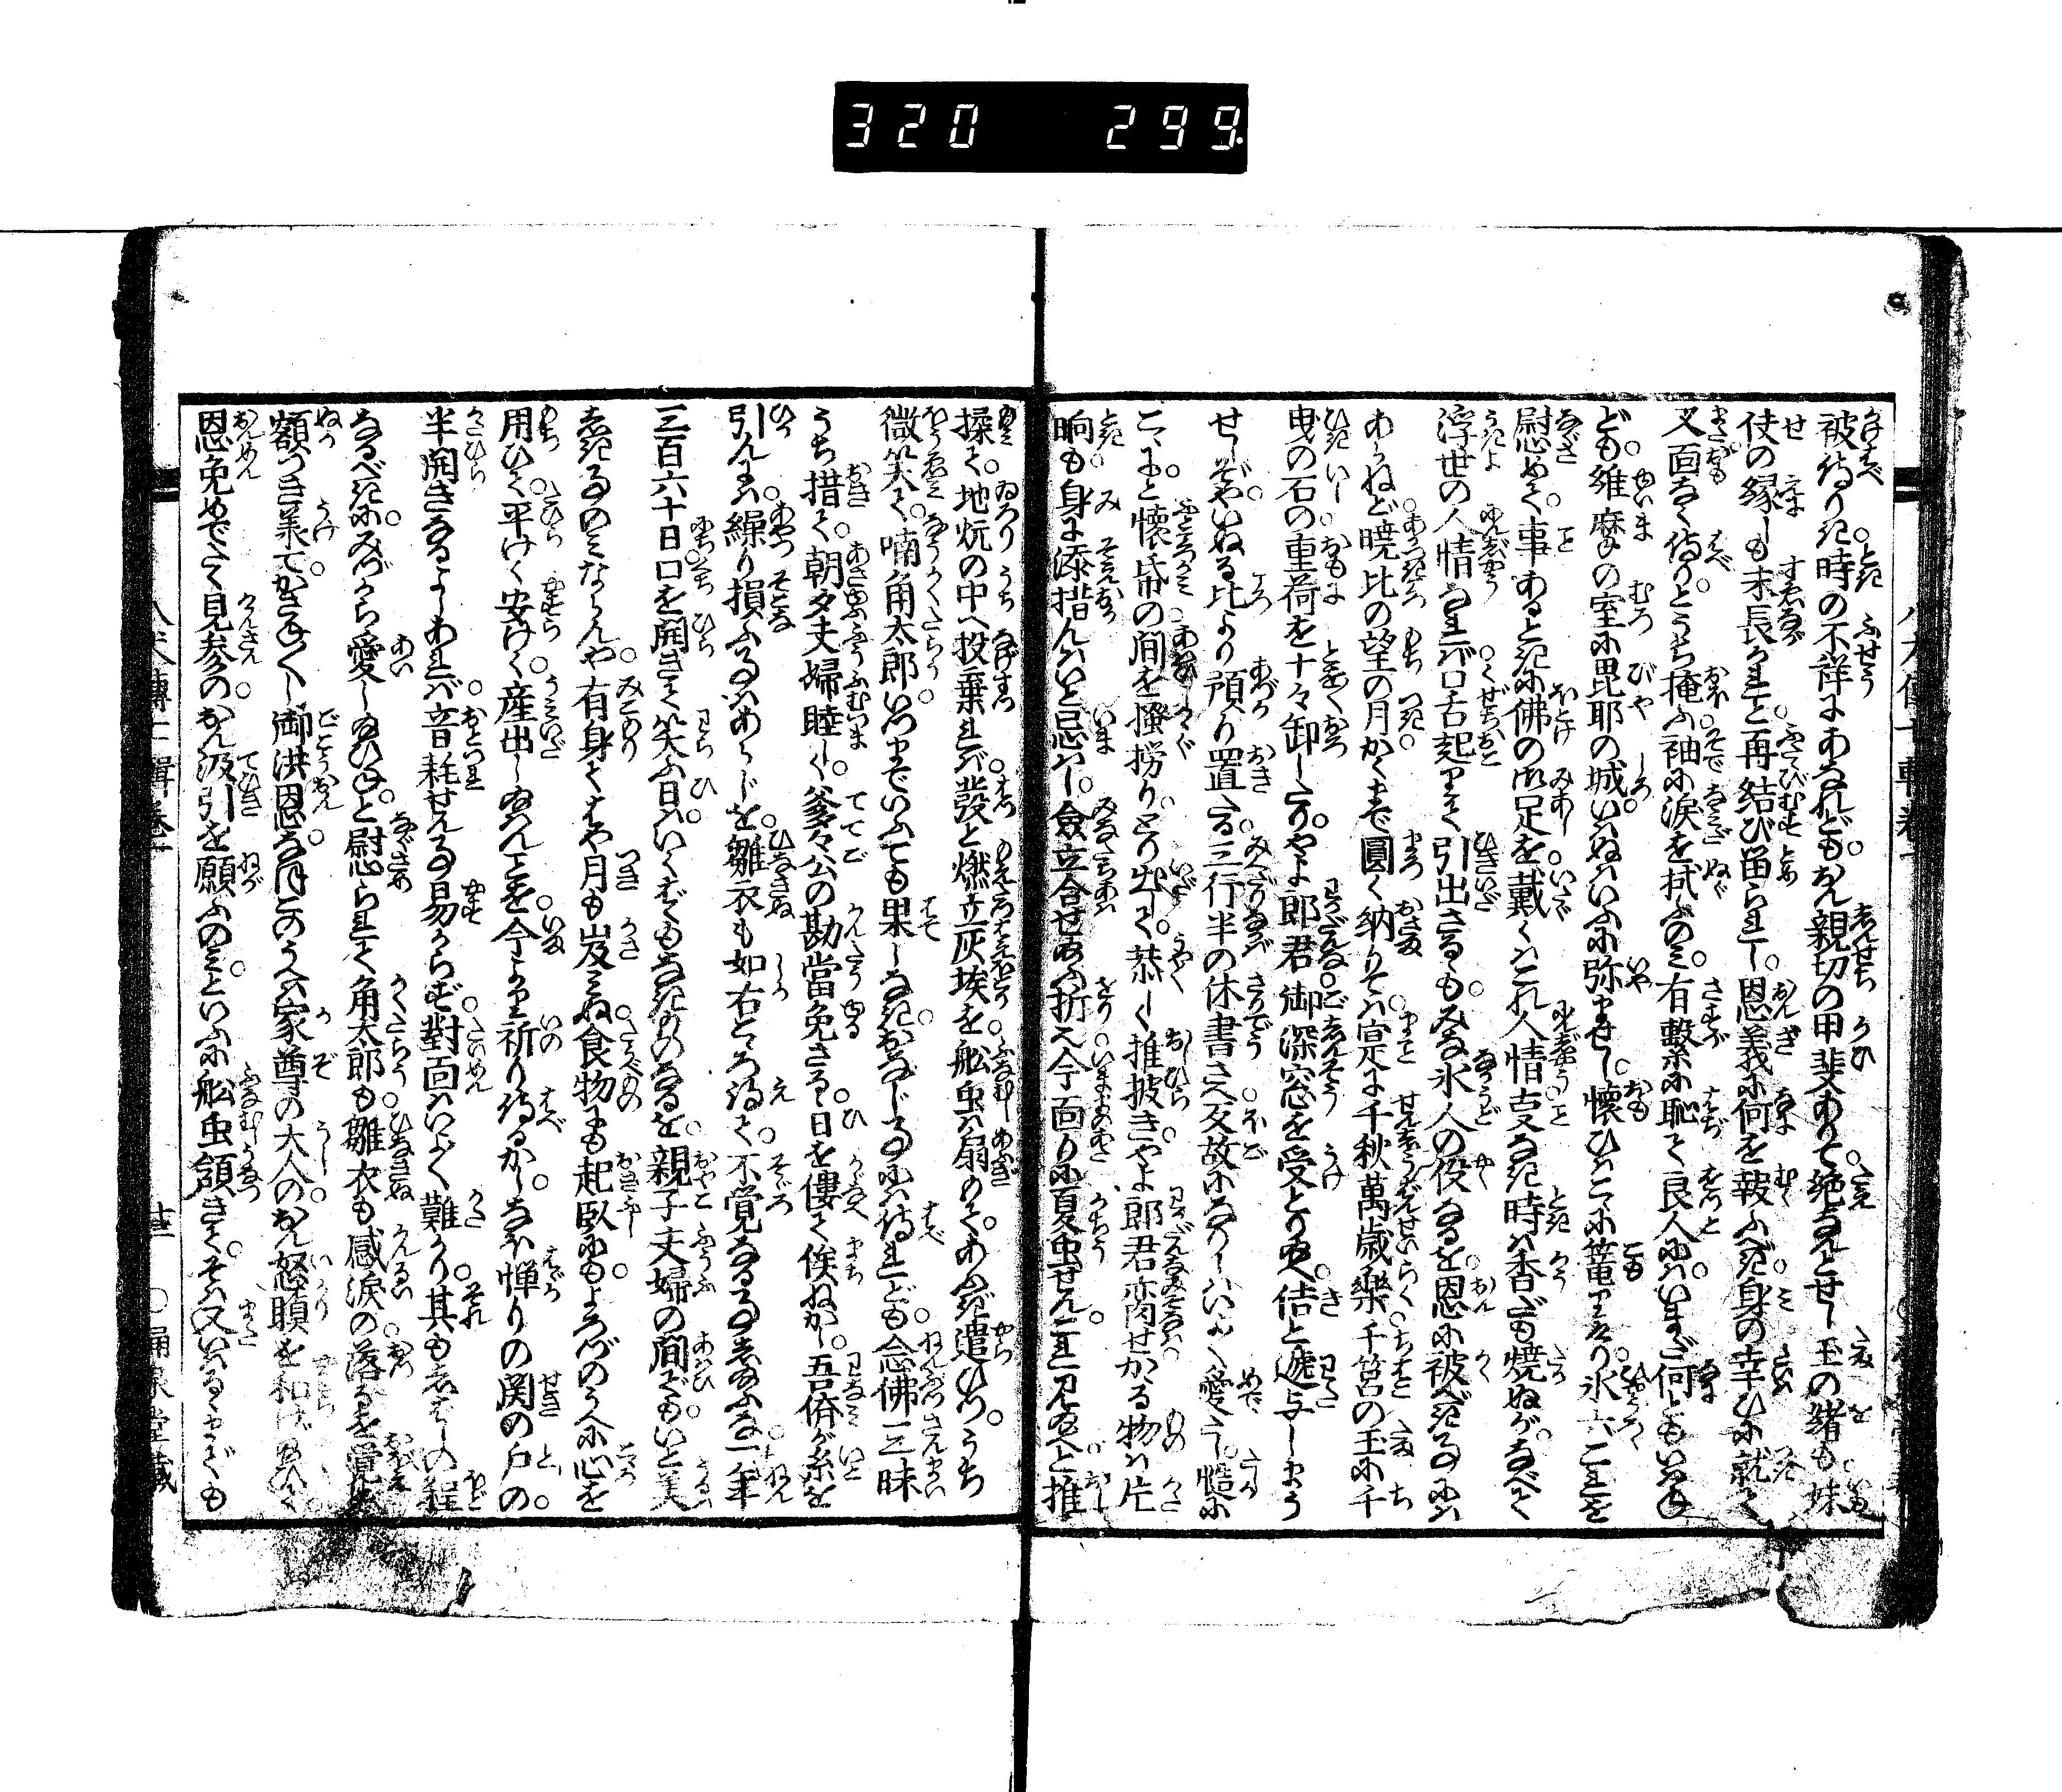 320 299
被侍りき時の不詳にあなれども。おん親切の甲斐ありて。絶なんとせし玉の緒も。妹
伕の縁しも末長かれと。再結び畄られし。恩義に何を報ふべき。身の幸ひに就て
又面なく侍り。とうち掩ふ袖に涙を拭ふのみ。有繋に恥て良人には。いまだ何ともいはね
ども。維摩の室に毘耶の城。いはぬはいふに弥ませし。懐ひはこゝに篭りけり。氷六これを
慰めて。事あるときに佛の御足を戴くはこれ人情。事なき時は香だも焼ぬが。なべて
浮世の人情なれば。口舌起りて引出さるゝも。みな氷人の役なるを。恩に被べき事には
あらねど。暁比の望の月。かくまで圓く納りては。寔に千秋萬歳樂。千筥の玉に千
曳の石の。重荷を十々卸したり。やよ郎君。御深窓を受とり給へ。佶と遞与しまう
せしぞや。いぬる比より預り置たる。三行半の休書さへ。反故になりしはいよゝ愛たし。髄に
こゝに。と懐帋の間を掻撈りとり出して。恭しく推披き。やよ郎君。病せかる物は片
晌も。身に添措んはいと忌はし。僉立合せ給ふ折。今面りに夏虫せん。これ見給へと推
揉て。地炕の中へ投棄れば。發と燃立灰埃を。舩虫は扇もて。あふぎ遣ひつ。うち
微笑て。喃角太郎。いつまでいふても果しなき。おなじ事には侍れども。念佛三昧
うち措て。朝夕夫婦睦しく。爹々公の勘當免さるゝ。日を僂て俟ねかし。吾儕が糸を
引んには。繰り損ふ事はあらじを。雛衣も如右とこゝろ得て。不覚なる事し給ふな。一年
三百六十日。口を開きて笑ふ日は。いくばくもなきものなるを。親子夫婦の間でも。いと美
しき事のみならんや。有身てはや月も岌みね。食物にも起臥にも。よろづのうへに心を
用ひて。平けく安けく。産出し給はんことを。今より祈り侍るかし。なほ憚りの関の戸の
半開きなるよしあれば。音耗せん事易からず。對面はいよゝ難かり。其も志ばしの程
なるべきに。みづから愛し給ひね。と慰られて角太郎も。雛衣も感涙の。落るを覚えず
額つき羕て。かさね〴〵し御洪恩。なほこのうへは家尊の大人の。おん怒頥を和げ給ひて。
恩免めでたく見参の。おん汲引を願ふのみ。といふに舩虫領きて。そは又いはるゝまでも